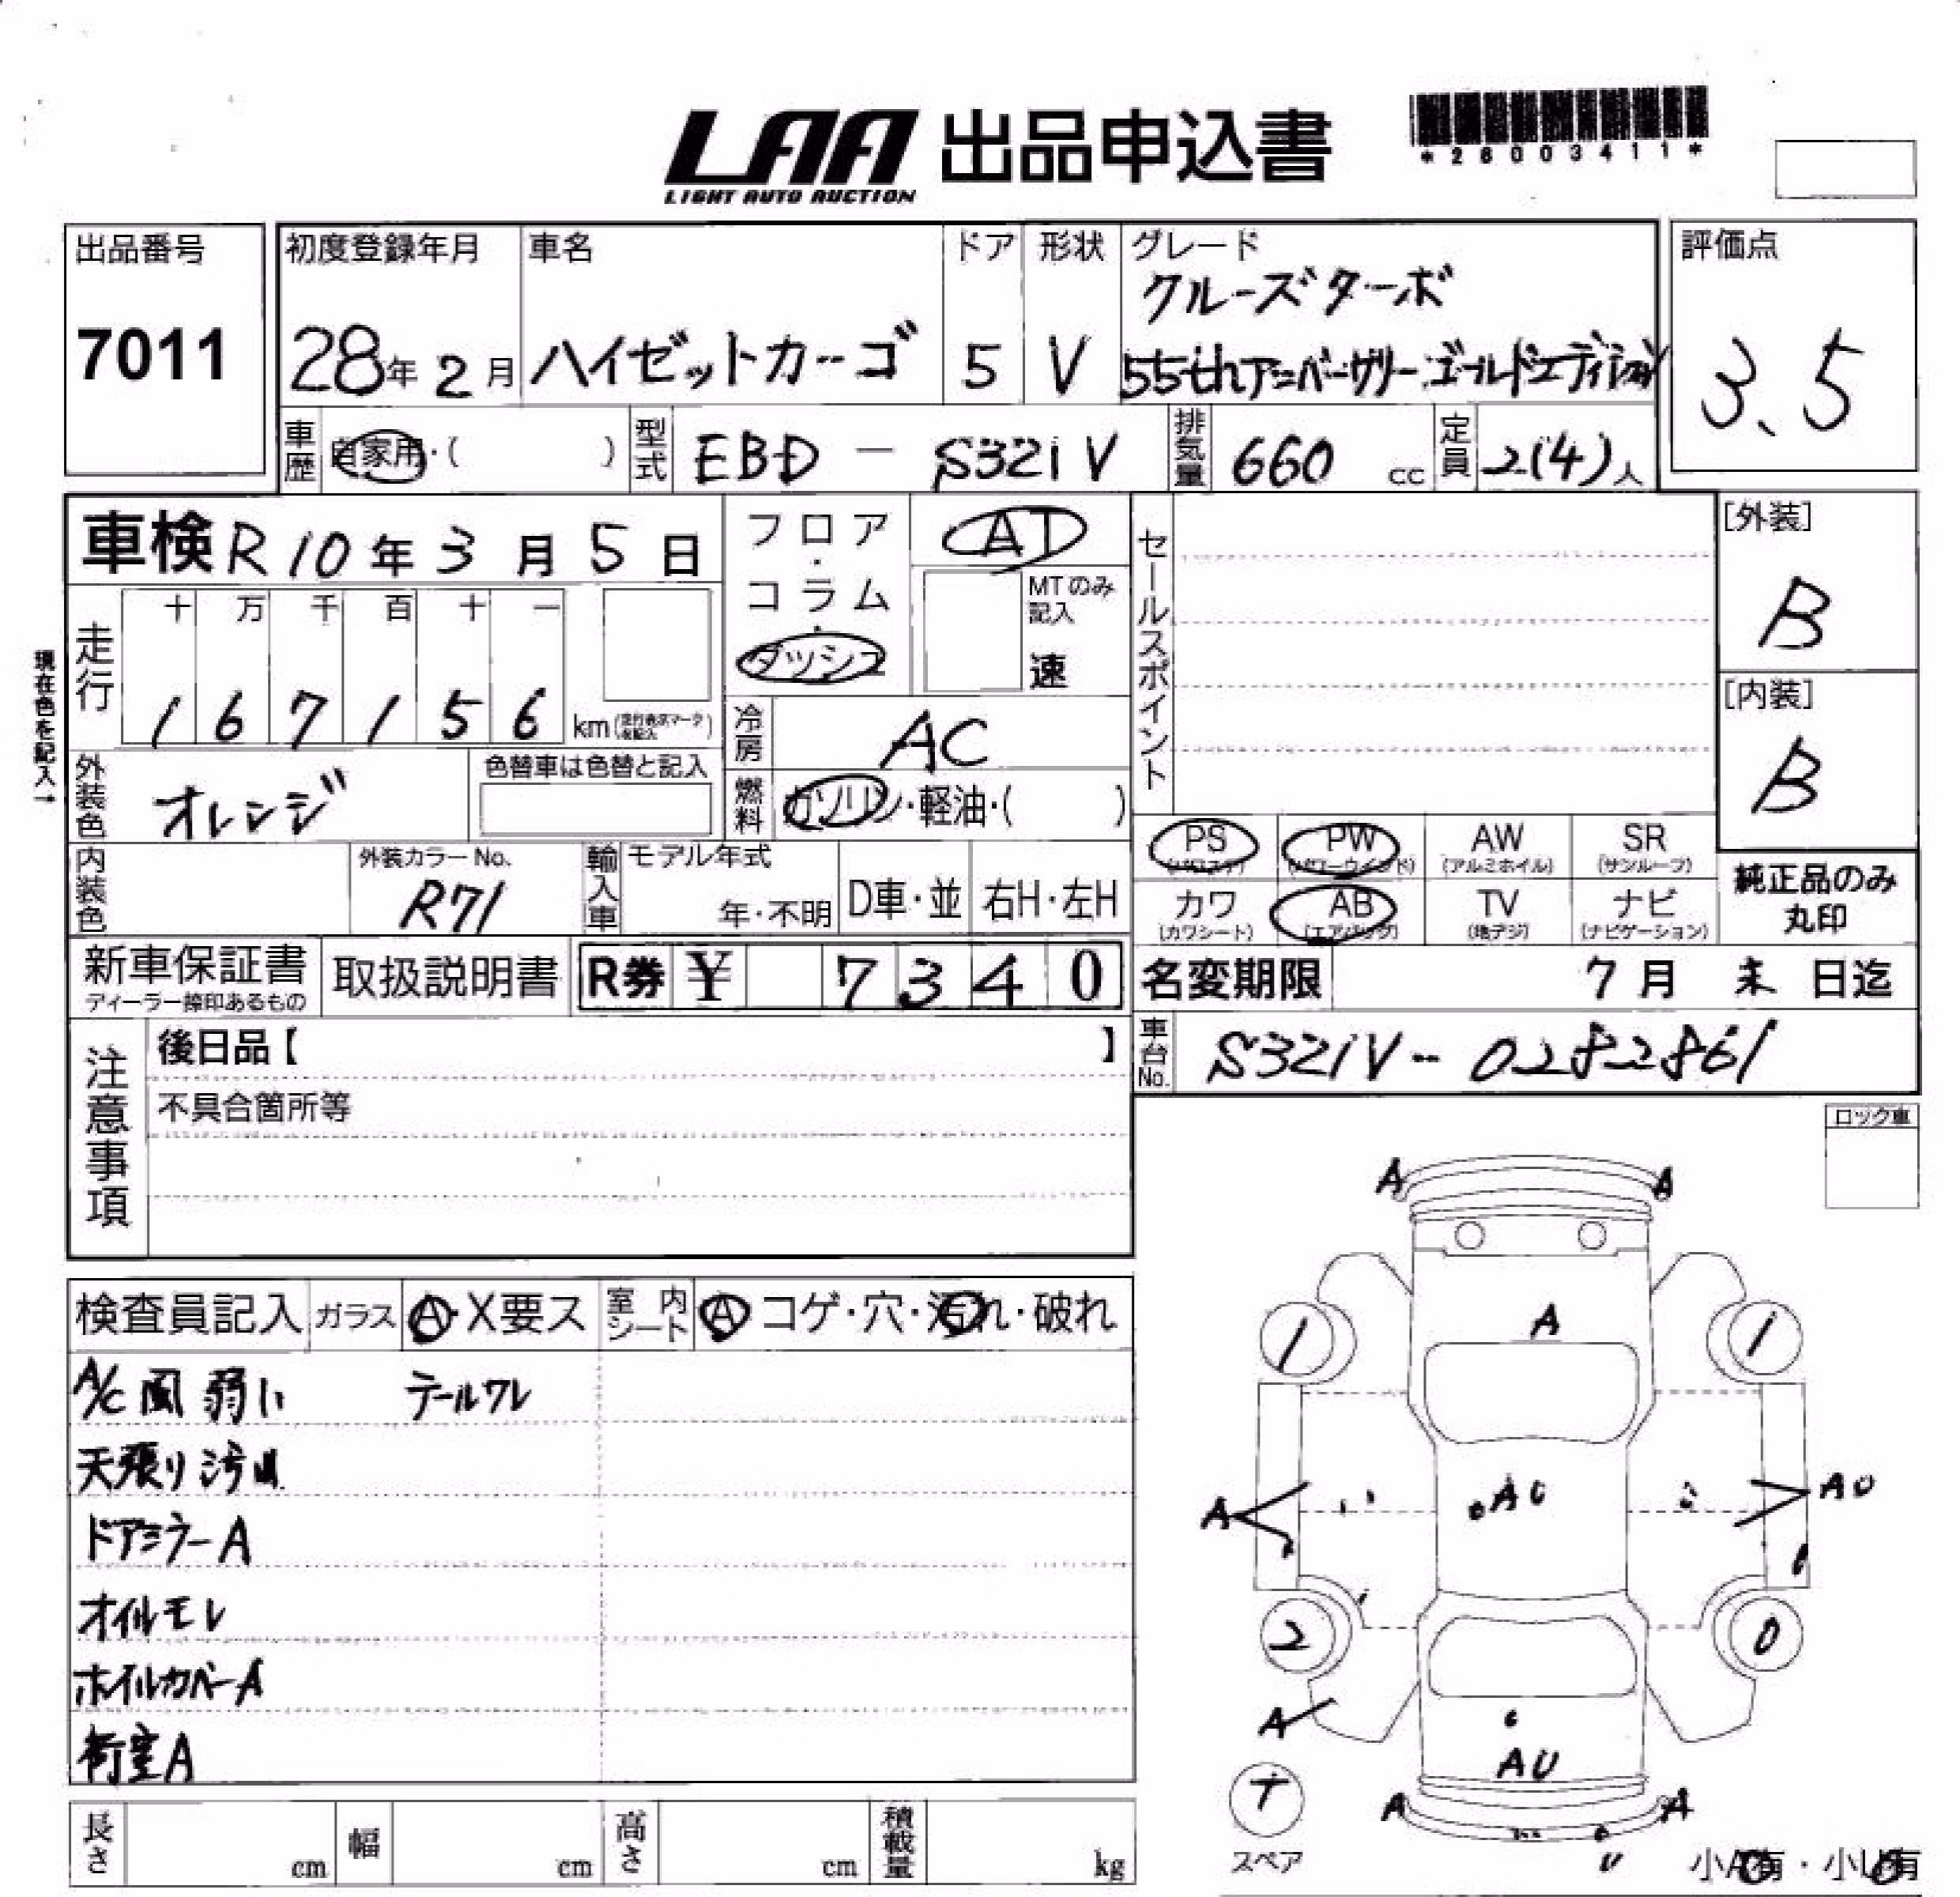 LAA 出品申込書
LIGHT AUTO AUCTION
*26003411*
出品番号
7011
初度登録年月
28年 2月
車名
ハイゼットカーゴ
ドア
5
形状
V
グレード
クルーズターボ
55thアニバーサリーゴールドエディション
評価点
3.5
車歴
自家用・( )
型式
EBD - S321V
排気量
660 cc
定員
2(4)人
車検 R10年 3月 5日
走行
十 万 千 百 十 一
1 6 7 1 5 6 km
現在色を記入→
フロア・コラム・ダッシュ
AT
MTのみ記入
速
冷房
AC
燃料
ガソリン・軽油・( )
セールスポイント
[外装]
B
[内装]
B
外装色
オレンジ
色替車は色替と記入
内装色
外装カラーNo.
R71
輸入車
モデル年式
年・不明
D車・並
右H・左H
PS (パワステ)
PW (パワーウインド)
AW (アルミホイル)
SR (サンルーフ)
カワ (カワシート)
AB (エアバッグ)
TV (地デジ)
ナビ (ナビゲーション)
純正品のみ
丸印
新車保証書
ディーラー捺印あるもの
取扱説明書
R券 ¥ 7340
名変期限 7月 末 日迄
車台No.
S321V-0282861
注意事項
後日品【 】
不具合箇所等
ロック車
検査員記入
ガラス A・X要ス
室内シート A コゲ・穴・汚れ・破れ
A/C風弱い テールワレ
天張り汚れ
ドアミラーA
オイルモレ
ホイルカバーA
荷室A
A A
A
1 1
A AU AU
2 0
A
AU
T
スペア
A A
U
小A有・小U有
長さ cm
幅 cm
高さ cm
積載量 kg